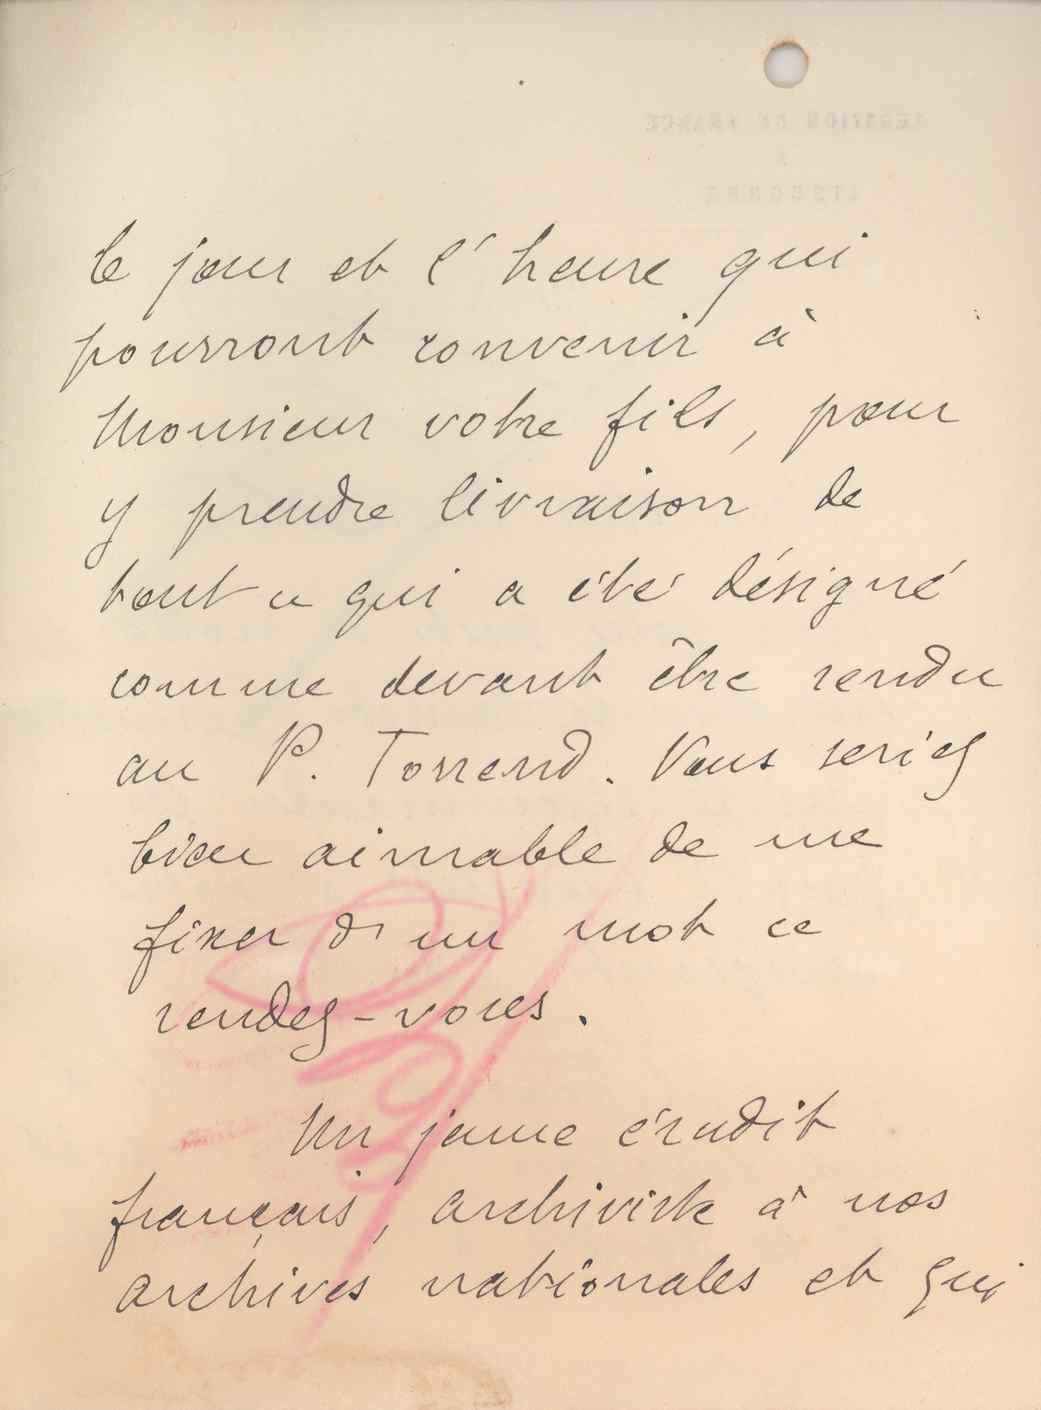 le jour et l'heure qui
pourront convenir à
Monsieur votre fils, pour
y prendre livraison de
tout ce qui a été désigné
comme devant être rendu
au P. Torrend. Vous seriez
bien aimable de me
fixer d'un mot ce
rendez-vous.
Un jeune érudit
français, archiviste à nos
archives nationales et qui